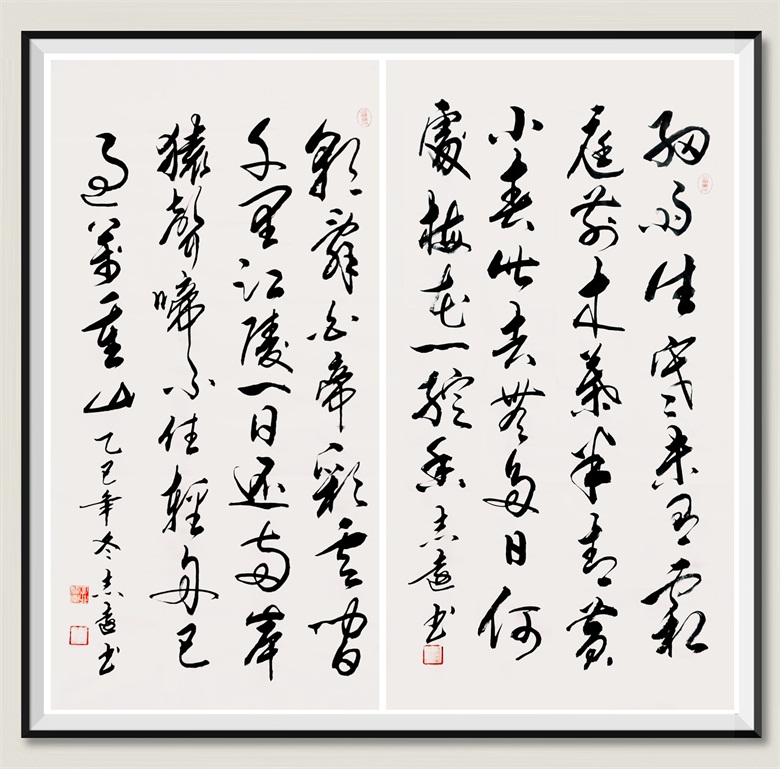 細雨生寒未有霜
庭前木葉半青黄
小春此去無多日何
處梅花一綻香 志遠书
朝辭白帝彩雲間
千里江陵一日還兩岸
猿聲啼不住輕舟已
過萬重山 乙巳年冬志遠书